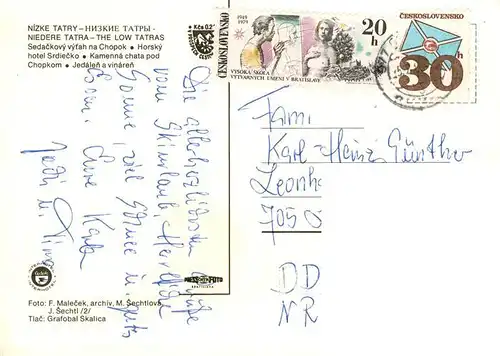 NÍZKE TATRY – НИЗКИЕ ТАТРЫ –
NIEDERE TATRA – THE LOW TATRAS
Sedačkový výťah na Chopok • Horský
hotel Srdiečko • Kamenná chata pod
Chopkom • Jedáleň a vináreň
Kčs 0,2
ČESKOSLOVENSKO
1949
1979
20 h
VYSOKÁ ŠKOLA
VÝTVARNÝCH UMENÍ V BRATISLAVE
30 h
ČESKOSLOVENSKO
Die allerherzlichsten Grüße
vom Skiurlaub. Herrliche
Sonne, viel Schnee
Eure
Fam.
Karl-Heinz Günther
Leonh
7050
DD
NR
PRESSFOTO
BRATISLAVA
Foto: F. Maleček, archív, M. Šechtlová,
J. Šechtl /2/
Tlač: Grafobal Skalica